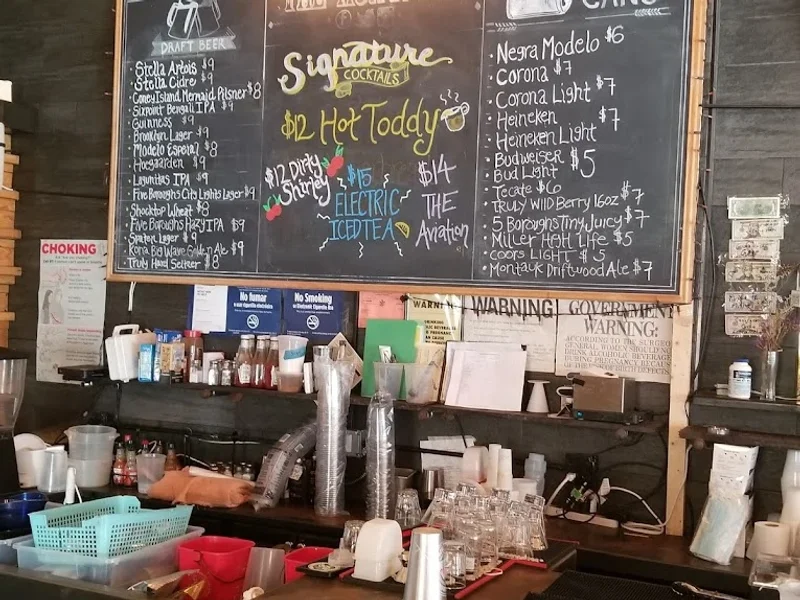 DRAFT BEER
Stella Artois $9
Stella Cidre $9
Coney Island Mermaid Pilsner $8
Sixpoint Bengali IPA $9
Guinness $9
Brooklyn Lager $9
Modelo Especial $8
Hoegaarden $9
Lagunitas IPA $9
Five Boroughs City Lights Lager $9
Shocktop Wheat $8
Five Boroughs Hazy IPA $9
Spaten Lager $9
Kona Big Wave Golden Ale $9
Truly Hard Seltzer $8
Signature
COCKTAILS
$12 Hot Toddy
$12 Dirty
Shirley
$15
ELECTRIC
ICED TEA
$14
THE
Aviation
CANS
Negra Modelo $6
Corona $7
Corona Light $7
Heineken
Heineken Light $7
Budweiser
Bud Light $5
Tecate $6
TRULY WILD Berry 16oz $7
5 Boroughs Tiny Juicy $7
Miller High Life $5
coors LIGHT $5
Montauk Driftwood Ale $7
CHOKING
No fumar
No Smoking
or Electronic Cigarette Use
WARNING
WARNING
GOVERNMENT
WARNING:
ACCORDING TO THE SURGEON
GENERAL, WOMEN SHOULD NOT
DRINK ALCOHOLIC BEVERAGES
DURING PREGNANCY BECAUSE
OF THE RISK OF BIRTH DEFECTS